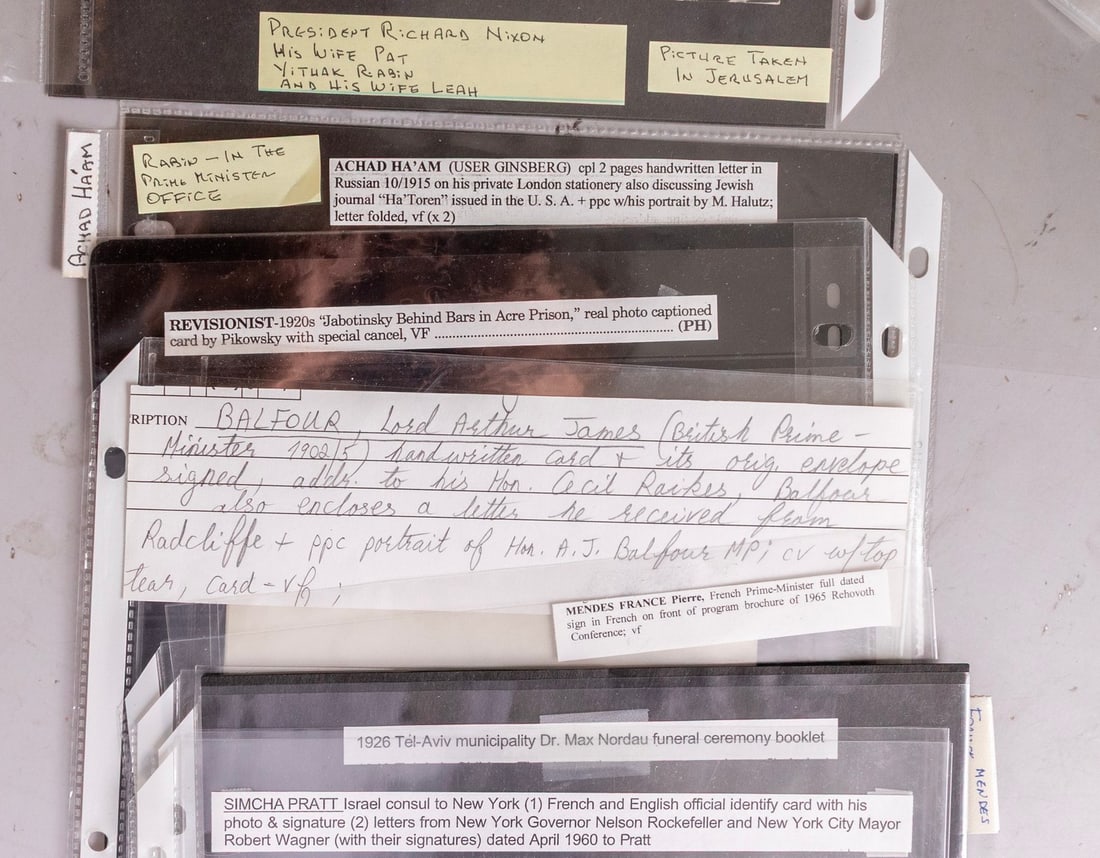 PRESIDENT RICHARD NIXON
HIS WIFE PAT
YITHAK RABIN
AND HIS WIFE LEAH
PICTURE TAKEN
IN JERUSALEM
ACHAD HA'AM
RABIN - IN THE
PRIME MINISTER
OFFICE
ACHAD HA'AM (USER GINSBERG) cpl 2 pages handwritten letter in
Russian 10/1915 on his private London stationery also discussing Jewish
journal "Ha'Toren" issued in the U. S. A. + ppc w/his portrait by M. Halutz;
letter folded, vf (x 2)
REVISIONIST-1920s "Jabotinsky Behind Bars in Acre Prison," real photo captioned
card by Pikowsky with special cancel, VF ................................................................ (PH)
RIPTION BALFOUR, Lord Arthur James (British Prime-
Minister 1902/5) handwritten card + its orig. envelope
signed, addr. to his Hon. Cecil Raikes, Balfour
also encloses a letter he received from
Radcliffe + ppc portrait of Hon. A.J. Balfour MP; cv w/top
tear, card - vf;
MENDES FRANCE Pierre, French Prime-Minister full dated
sign in French on front of program brochure of 1965 Rehovoth
Conference; vf
1926 Tel-Aviv municipality Dr. Max Nordau funeral ceremony booklet
MENDES
SIMCHA PRATT Israel consul to New York (1) French and English official identify card with his
photo & signature (2) letters from New York Governor Nelson Rockefeller and New York City Mayor
Robert Wagner (with their signatures) dated April 1960 to Pratt